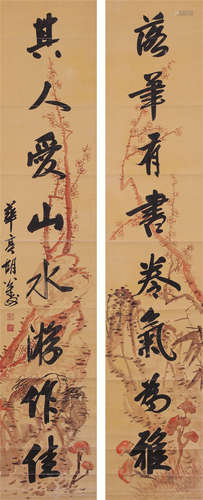 落筆有書卷氣為雅
其人愛山水游作佳
華亭胡